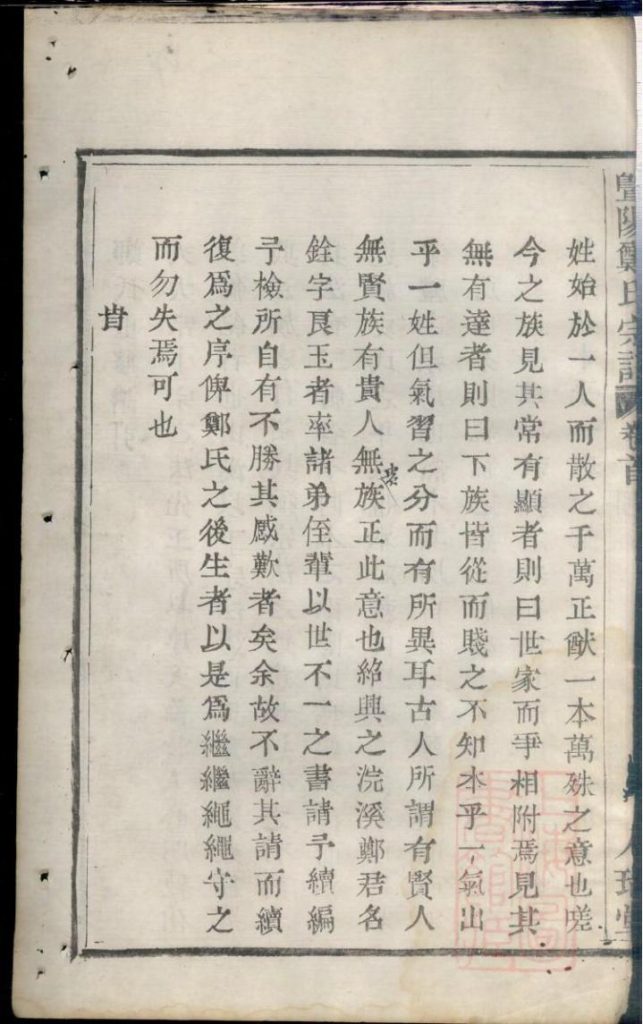 暨陽鄭氏宗譜 卷首
姓始於一人而散之千萬正猷一本萬殊之意也嗟
今之族見其常有顯者則曰世家而爭相附焉見其
無有達者則曰下族皆從而賤之不知本乎一氣出
乎一姓但氣習之分而有所異耳古人所謂有賢人
無賢族有貴人無貴族正此意也紹興之浣溪鄭君名
銓字良玉者率諸弟侄輩以世不一之書請予續編
予檢所自有不勝其感歎者矣余故不辭其請而續
復爲之序俾鄭氏之後生者以是爲繼繼繩繩守之
而勿失焉可也
旹